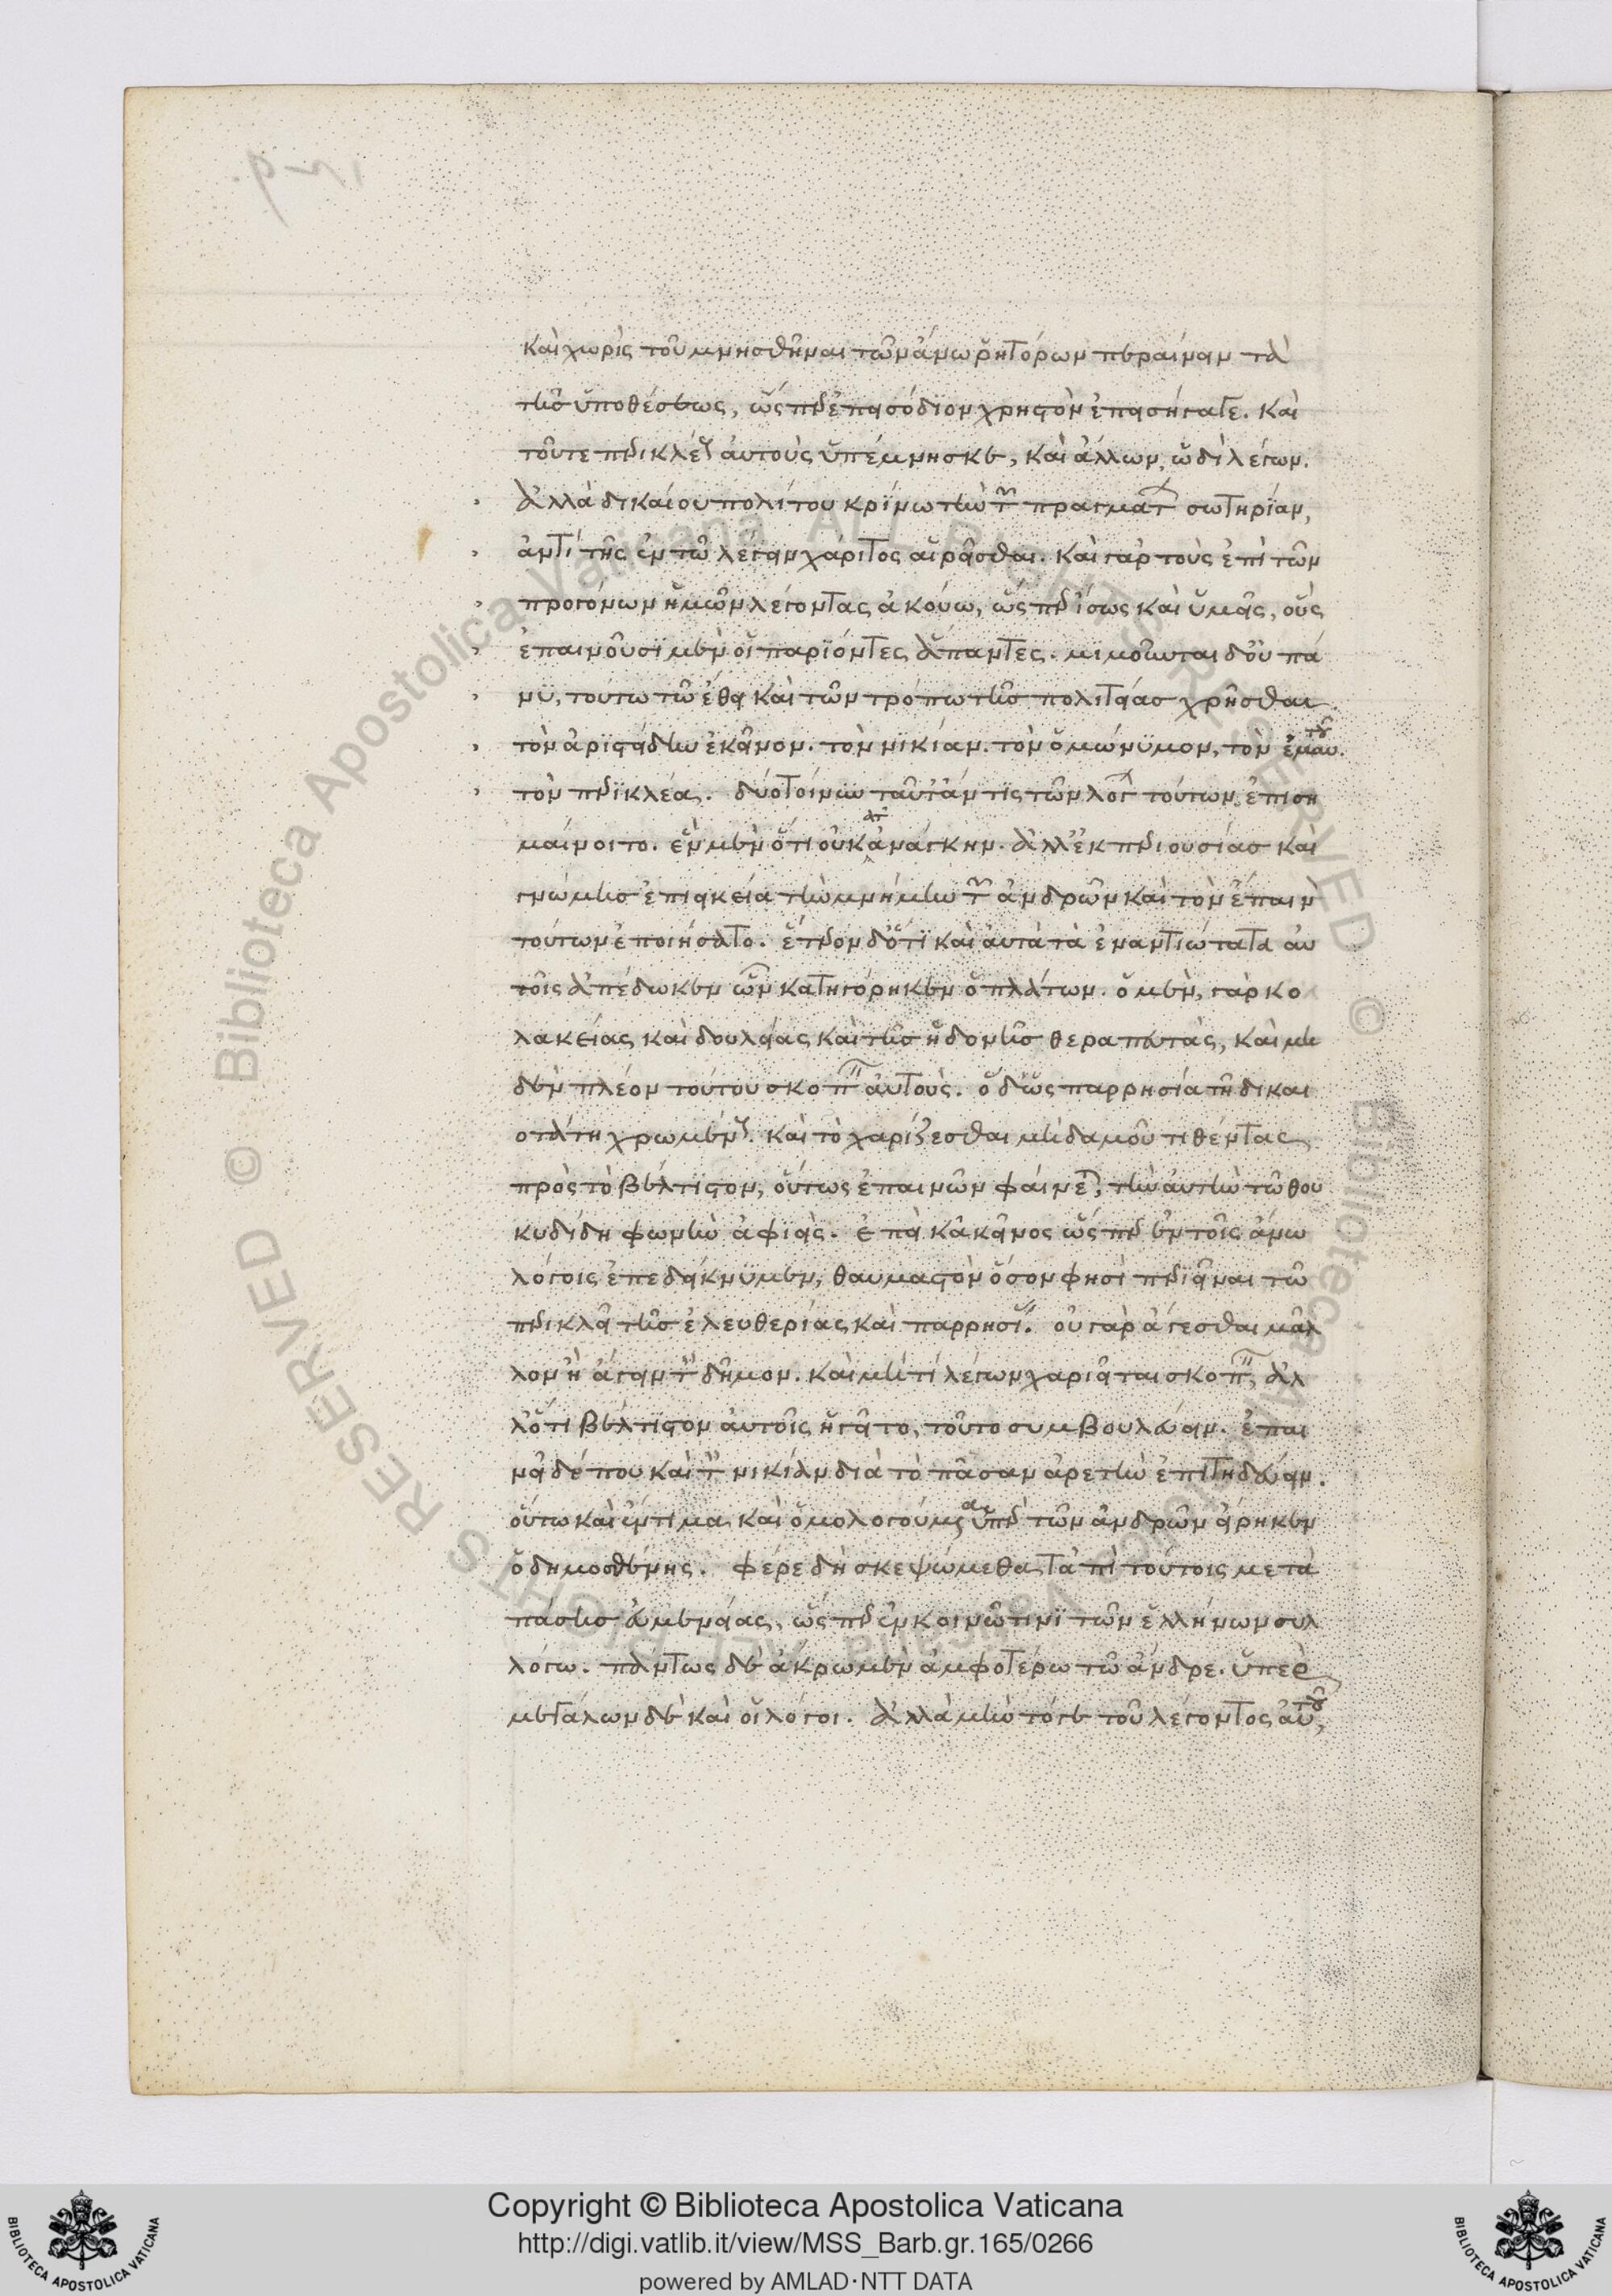 καὶ χωρὶς τοῦ μνησθῆναι τῶν ἄνω ῥητόρων περαίνειν τὰ
τῆς ὑποθέσεως, ὥσπερ ἐπεισόδιον χρηστὸν ἐπεισήγαγε. καὶ
τοῦτε περικλέους αὐτοὺς ὑπέμνησκε, καὶ ἄλλων, ὡδὶ λέγων.
ἀλλὰ δικαίου πολίτου κρίνω τὴν τῶν πραγμάτων σωτηρίαν,
ἀντὶ τῆς ἐν τῷ λέγειν χάριτος αἱρεῖσθαι. καὶ γὰρ τοὺς ἐπὶ τῶν
προγόνων ἡμῶν λέγοντας ἀκούω, ὥσπερ ἴσως καὶ ὑμεῖς, οὓς
ἐπαινοῦσι μὲν οἱ παριόντες ἅπαντες. μιμοῦνται δ' οὐ πά
νυ, τούτω τῶ ἔθει καὶ τῶν τρόπω τῆς πολιτείας χρῆσθαι
τὸν ἀριστείδην ἐκεῖνον. τὸν νικίαν. τὸν ὁμώνυμον, τὸν ἐμαυτοῦ.
τὸν περικλέα. δύο τοίνυν ταῦτ' ἄν τις τῶν λόγων τούτων ἐπιση
μαίνοιτο. ἓν μὲν ὅτι οὐ κατ' ἀνάγκην. ἀλλ' ἐκ περιουσίας καὶ
γνώμης ἐπιεικεία τὴν μνήμην τῶν ἀνδρῶν καὶ τὸν ἔπαινον
τούτων ἐποιήσατο. ἕτερον δ' ὅτι καὶ αὐτὰ τὰ ἐναντιώτατα αὐ
τοῖς ἀπέδωκεν ὧν κατηγόρηκεν ὁ πλάτων. ὁ μὲν, γὰρ κο
λακείας καὶ δουλείας καὶ τῆς ἡδονῆς θεραπευτὰς, καὶ μη
δὲν πλέον τούτου σκοπεῖν αὐτούς. ὁ δ' ὡς παρρησία τῆ δικαι
οτάτη χρωμένους. καὶ τὸ χαρίζεσθαι μηδαμοῦ τιθέντας
πρὸς τὸ βέλτιστον, οὕτως ἐπαινῶν φαίνεται, τὴν αὐτὴν τῶ θου
κυδίδη φωνὴν ἀφιείς. ἐπεὶ κἀκεῖνος ὥσπερ ἐν τοῖς ἄνω
λόγοις ἐπεδείκνυμεν, θαυμαστὸν ὅσον φησὶ περιεῖναι τῶ
περικλεῖ τῆς ἐλευθερίας καὶ παρρησίας. οὐ γὰρ ἄγεσθαι μᾶλ
λον ἢ ἄγειν τὸν δῆμον. καὶ μή τι λέγων χαριεῖται σκοπεῖν, ἀλ
λ' ὅ τι βέλτιστον αὐτοῖς ἡγεῖτο, τοῦτο συμβουλεύειν. ἐπαι
νεῖ δέ που καὶ τὸν νικίαν διὰ τὸ πᾶσαν ἀρετὴν ἐπιτηδεύειν.
οὕτω καὶ ἔντιμα καὶ ὁμολογούμενα ὑπὲρ τῶν ἀνδρῶν εἴρηκεν
ὁ δημοσθένης. φέρε δὴ σκεψώμεθα τἀπὶ τούτοις μετὰ
πάσης εὐμενείας, ὥσπερ ἐν κοινῶ τινὶ τῶν ἑλλήνων συλ
λόγω. πάντως δὲ ἄκρω μὲν ἀμφοτέρω τὼ ἄνδρε. ὑπὲρ
μεγάλων δὲ καὶ οἱ λόγοι. ἀλλὰ μὴν τόγε τοῦ λέγοντος αὐτοῦ,
Copyright © Biblioteca Apostolica Vaticana
http://digi.vatlib.it/view/MSS_Barb.gr.165/0266
powered by AMLAD·NTT DATA